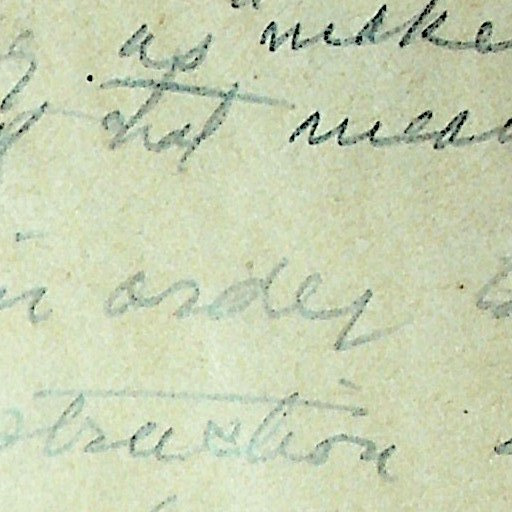 as make
that mean
in order
struction